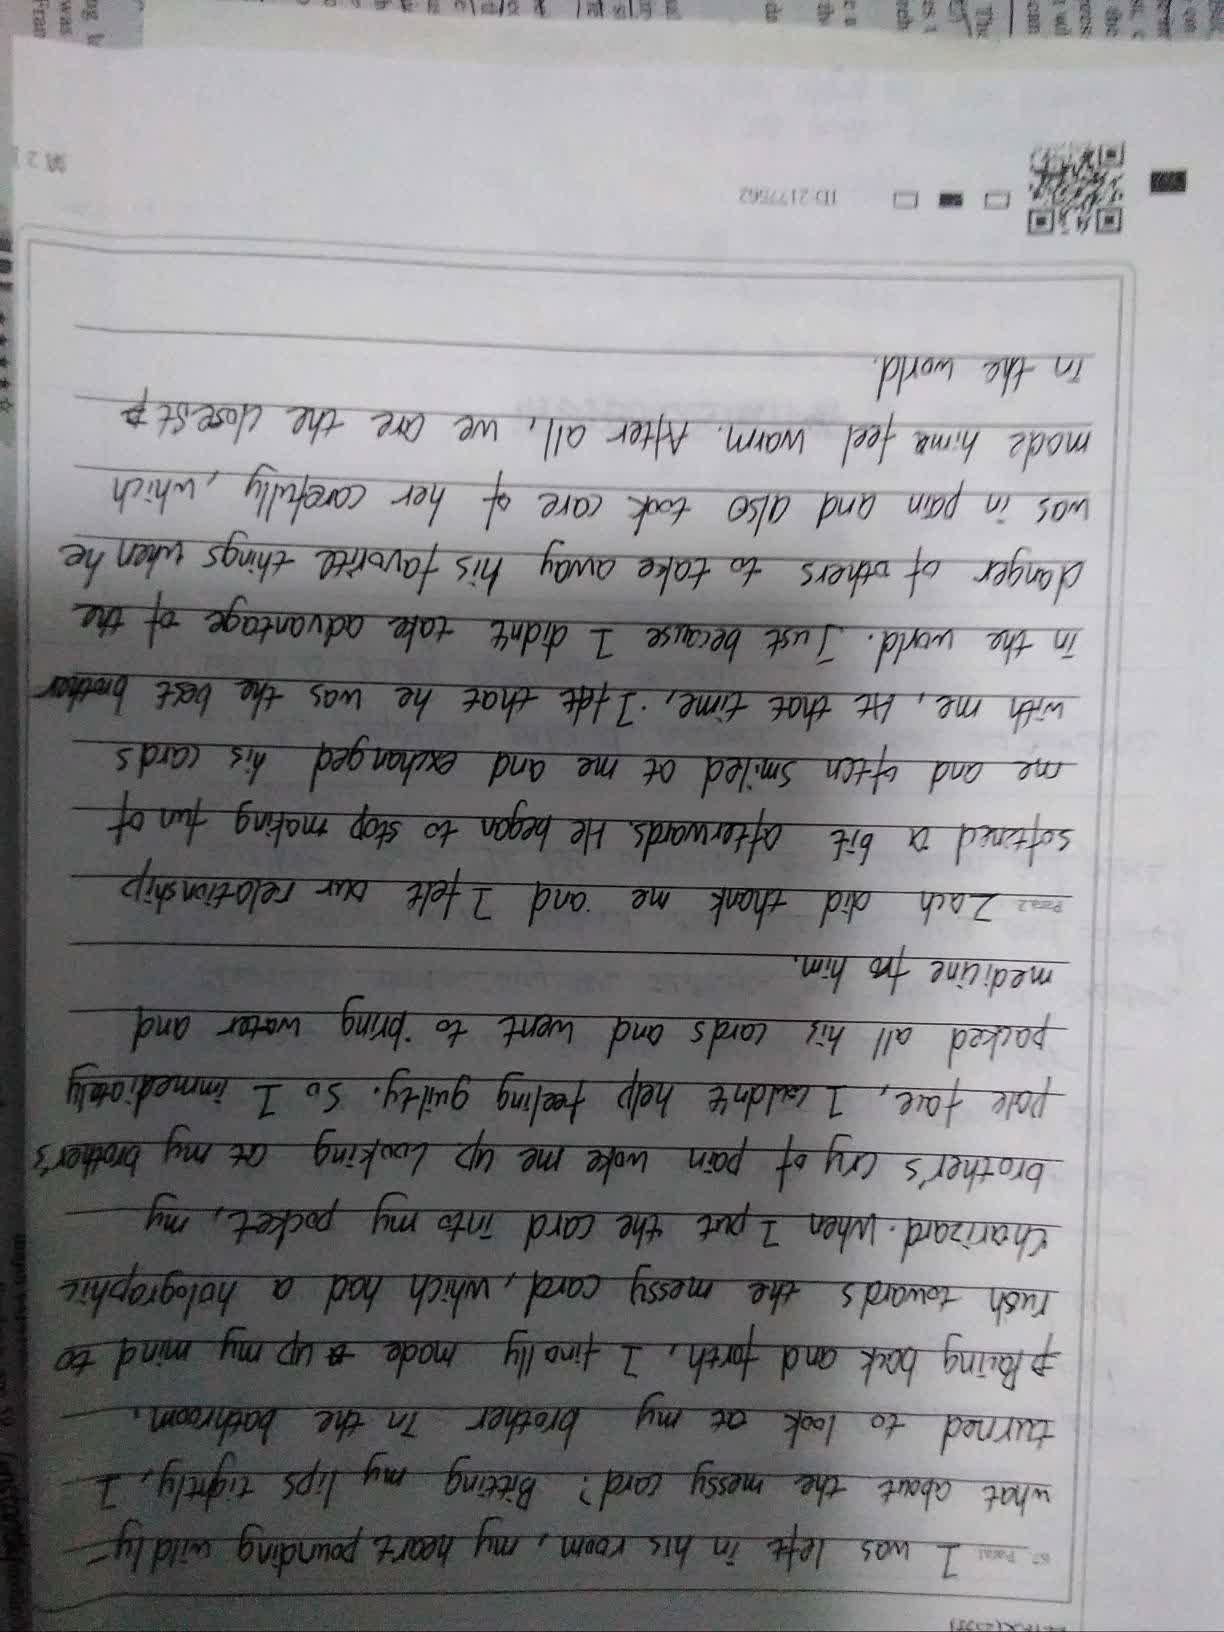 67. Para1 I was left in his room, my heart pounding wildly –
what about the messy card? Bitting my lips tightly, I
turned to look at my brother in the bathroom.
Pacing back and forth, I finally made up my mind to
rush towards the messy card, which had a holographic
Charizard. When I put the card into my pocket, my
brother's cry of pain woke me up. Looking at my brother's
pale face, I couldn't help feeling guilty. So I immediately
packed all his cards and went to bring water and
medicine to him.
Para2 Zach did thank me and I felt our relationship
softened a bit afterwards. He began to stop making fun of
me and often smiled at me and exchanged his cards
with me, At that time, I felt that he was the best brother
in the world. Just because I didn't take advantage of the
danger of others to take away his favorite things when he
was in pain and also took care of her carefully, which
made him feel warm. After all, we are the closest
in the world.
ID:2177562
第2